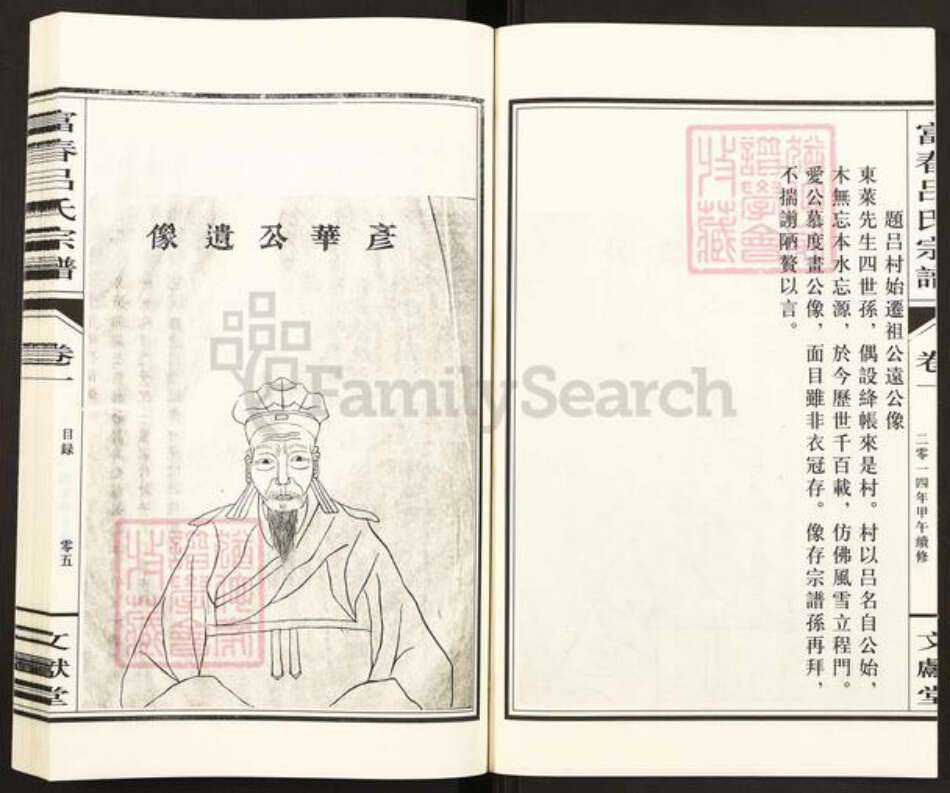 富春呂氏宗譜
卷一
二零一四年甲午續修
文獻堂
題呂村始遷祖公遠公像
東萊先生四世孫，偶設絳帳來是村。村以呂名自公始，
木無忘本水忘源，於今歷世千百載，仿佛風雪立程門。
愛公慕度畫公像，面目雖非衣冠存。像存宗譜孫再拜，
不揣謭陋贅以言。
彥華公遺像
富春呂氏宗譜
卷一
目録
零五
文獻堂
FamilySearch